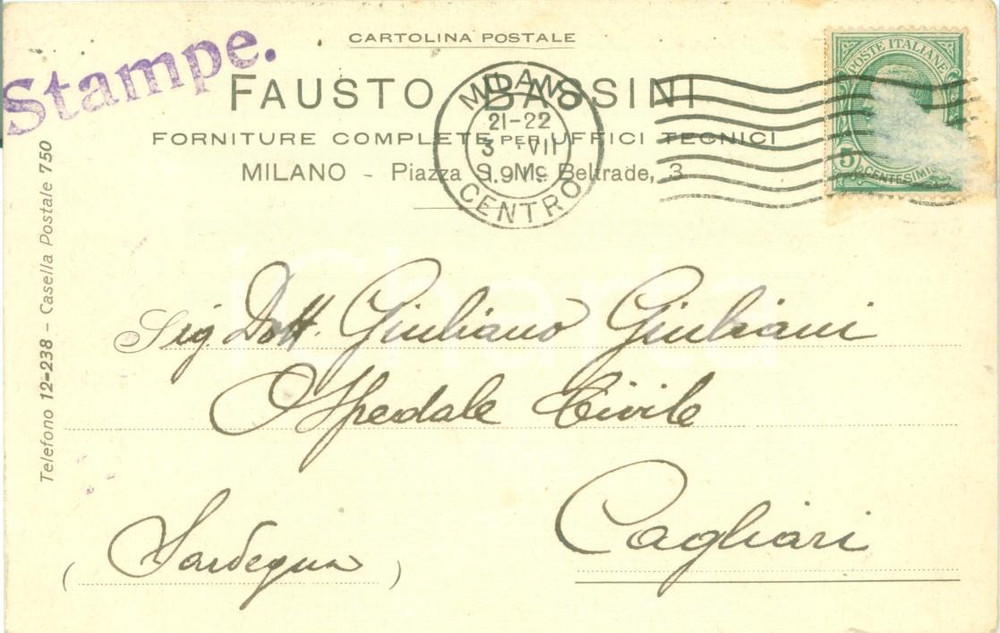 CARTOLINA POSTALE
Stampe.
FAUSTO BASSINI
FORNITURE COMPLETE PER UFFICI TECNICI
MILANO - Piazza S. Mª Beltrade, 3
MILANO
21-22
3 VII
CENTRO
POSTE ITALIANE
5
CENTESIMI
Telefono 12-238 - Casella Postale 750
Sig Dott. Giuliano Giuliani
Ospedale Civile
Cagliari
(Sardegna)